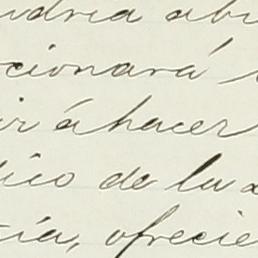 ndria abu
cionará
ir á hacer
dico de la
cia, ofrecie